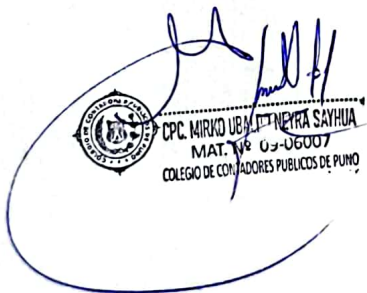 CPC. MIRKO NEYRA SAYHUA
MAT. Nº 09-06007
COLEGIO DE CONTADORES PUBLICOS DE PUNO